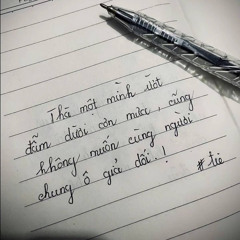 Thà một mình ướt
đẫm dưới cơn mưa, cũng
không muốn cùng người
chung ô giả dối !